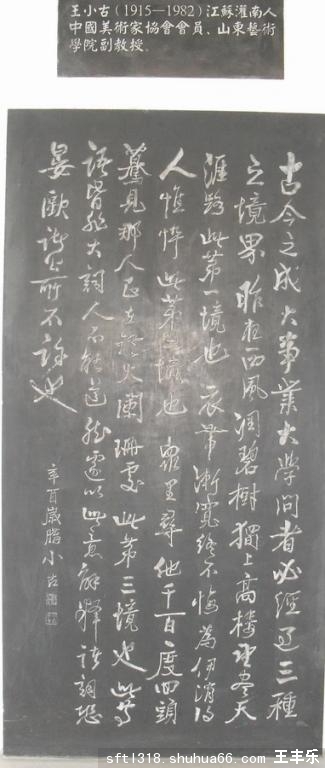 王小古（1915—1982）江蘇灌南人
中國美術家協會會員、山東藝術
學院副教授。
古今之成大事業大學問者必經過三種
之境界昨夜西風凋碧樹獨上高樓望盡天
涯路此第一境也衣帶漸寬終不悔為伊消得
人憔悴此第二境也衆里尋他千百度回頭
驀見那人正在燈火闌珊處此第三境也此等
語皆非大詞人不能道然遽以此意解釋諸詞恐
晏歐諸公所不許也
辛酉歲臘小古
sftl318.shuhua66.com 王丰乐